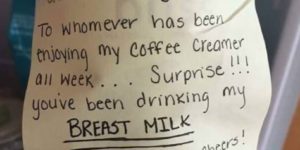 To whomever has been
enjoying my coffee creamer
all week . . . Surprise!!!
you've been drinking my
BREAST MILK
cheers!